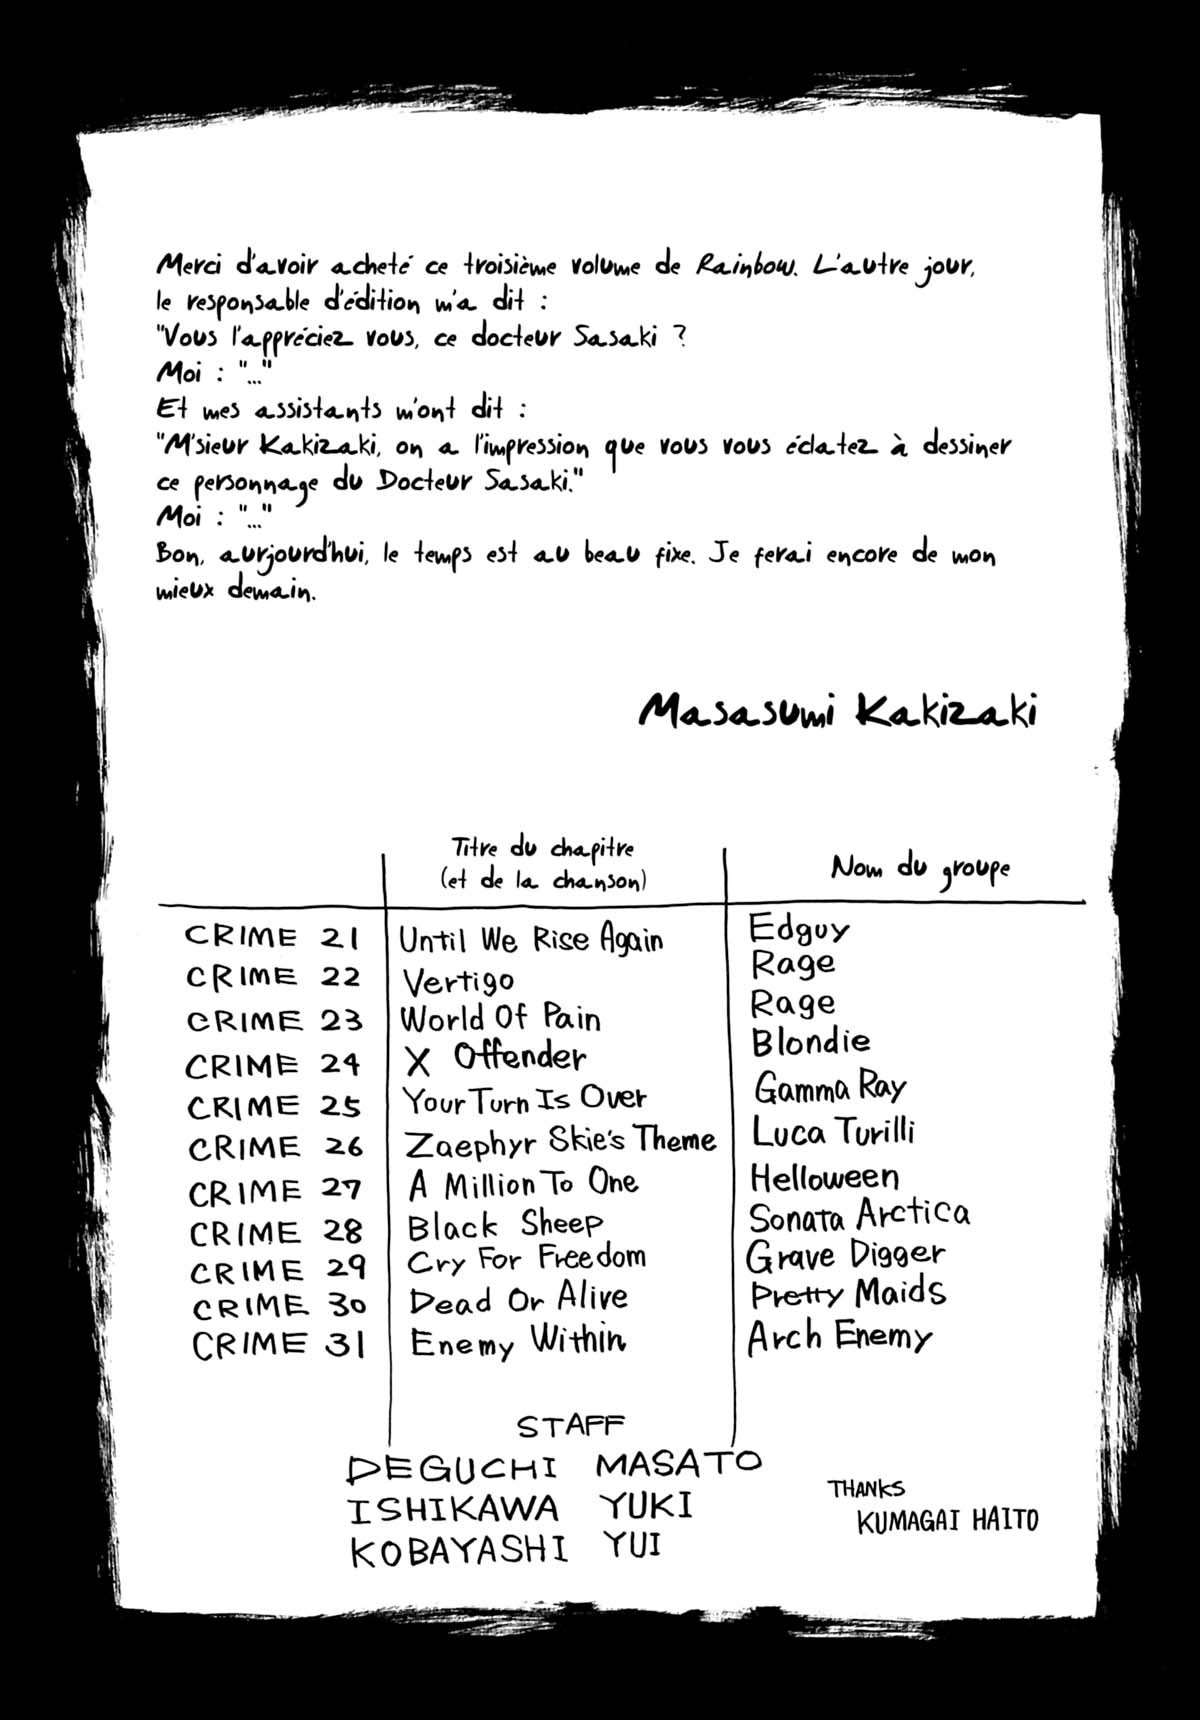 Merci d'avoir acheté ce troisième volume de Rainbow. L'autre jour,
le responsable d'édition m'a dit :
"Vous l'appréciez vous, ce docteur Sasaki ?
Moi : "..."
Et mes assistants m'ont dit :
"M'sieur Kakizaki, on a l'impression que vous vous éclatez à dessiner
ce personnage du Docteur Sasaki."
Moi : "..."
Bon, aurjourd'hui, le temps est au beau fixe. Je ferai encore de mon
mieux demain.
Masasumi Kakizaki
Titre du chapitre
(et de la chanson)
Nom du groupe
CRIME 21 Until We Rise Again Edguy
CRIME 22 Vertigo Rage
CRIME 23 World Of Pain Rage
CRIME 24 X Offender Blondie
CRIME 25 Your Turn Is Over Gamma Ray
CRIME 26 Zaephyr Skie's Theme Luca Turilli
CRIME 27 A Million To One Helloween
CRIME 28 Black Sheep Sonata Arctica
CRIME 29 Cry For Freedom Grave Digger
CRIME 30 Dead Or Alive Pretty Maids
CRIME 31 Enemy Within Arch Enemy
STAFF
DEGUCHI MASATO
ISHIKAWA YUKI
KOBAYASHI YUI
THANKS
KUMAGAI HAITO